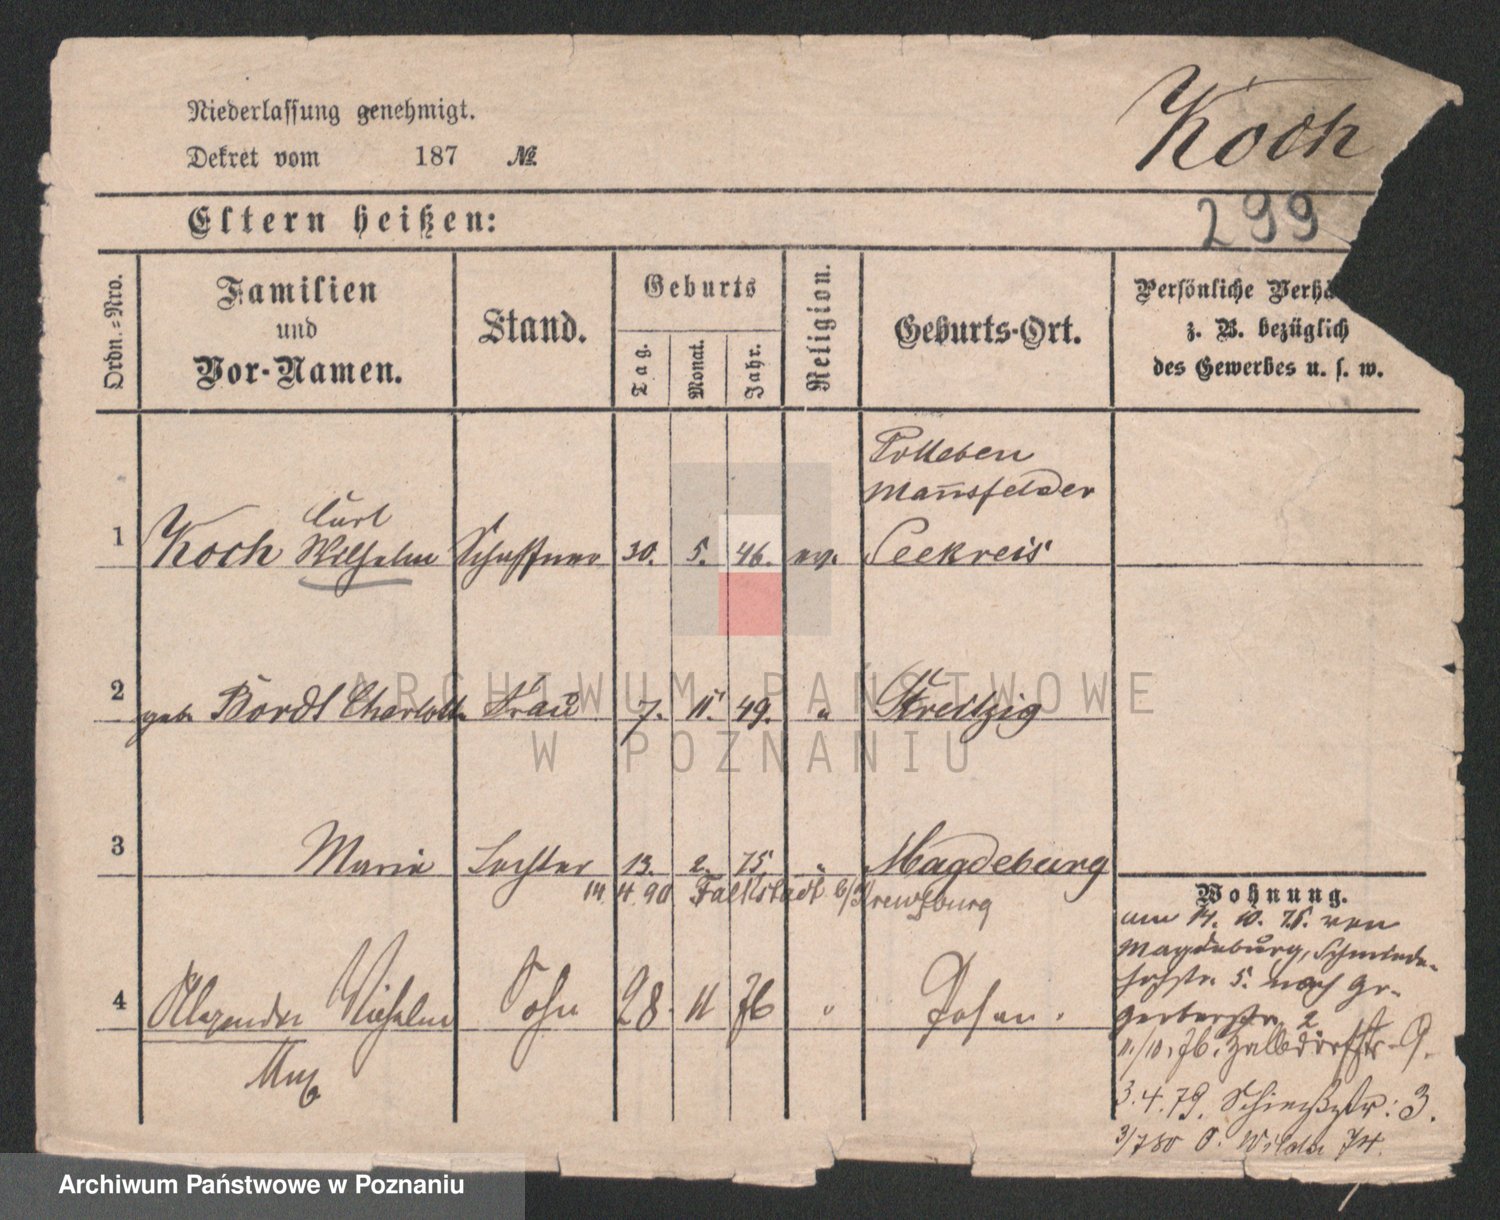 Niederlassung genehmigt.
Dekret vom 187 №
Koch
299
Eltern heißen:
Ordn.=Nro.
Familien
und
Vor-Namen.
Stand.
Geburts
Tag.
Monat.
Jahr.
Religion.
Geburts-Ort.
Persönliche Verhä
z. B. bezüglich
des Gewerbes u. s. w.
Polleben
Mansfelder
Curt
1 Koch Wilhelm Schaffner 30. 5. 46. ev. Seekreis
2 geb. Bordt Charlotte Frau 7. 11. 49. " Streitzig
3 Marie Tochter 13. 2. 75. " Magdeburg
14 4. 90 Falkstadt
Wohnung.
am 14. 10. 75. von
Magdeburg, Schmiede-
hofstr. 5. nach Gr.
Gerberstr. 2
4 Alexander Wilhelm Sohn 28. 11 76 " Posen.
Max
11./10. 76. Halbdorfstr. 9.
3. 4. 79. Schießstr: 3.
3/7 80 O. Wilda 74.
ARCHIWUM PAŃSTWOWE
W POZNANIU
Archiwum Państwowe w Poznaniu